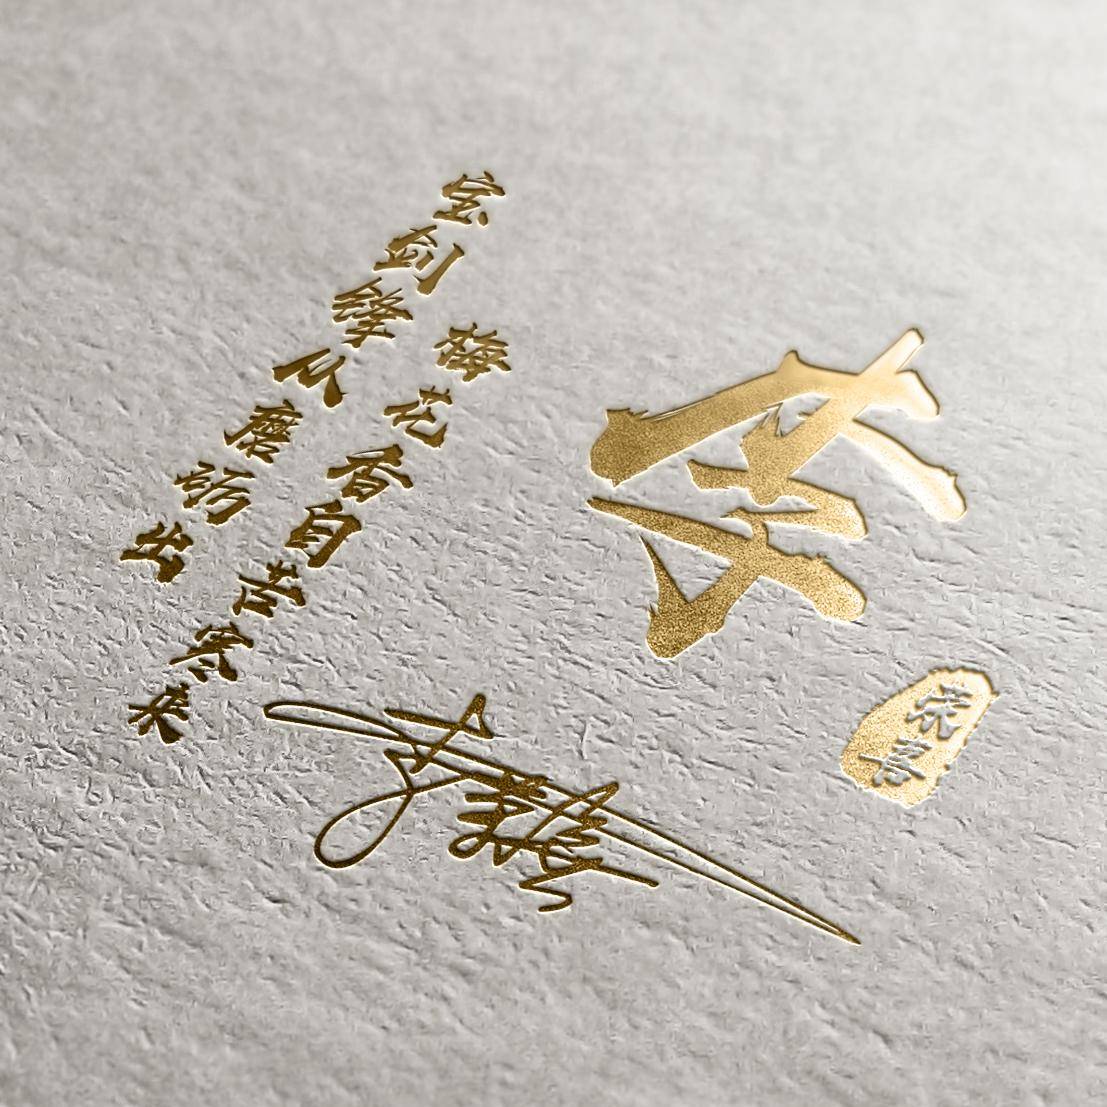 宝剑锋从磨砺出
梅花香自苦寒来
荣喜